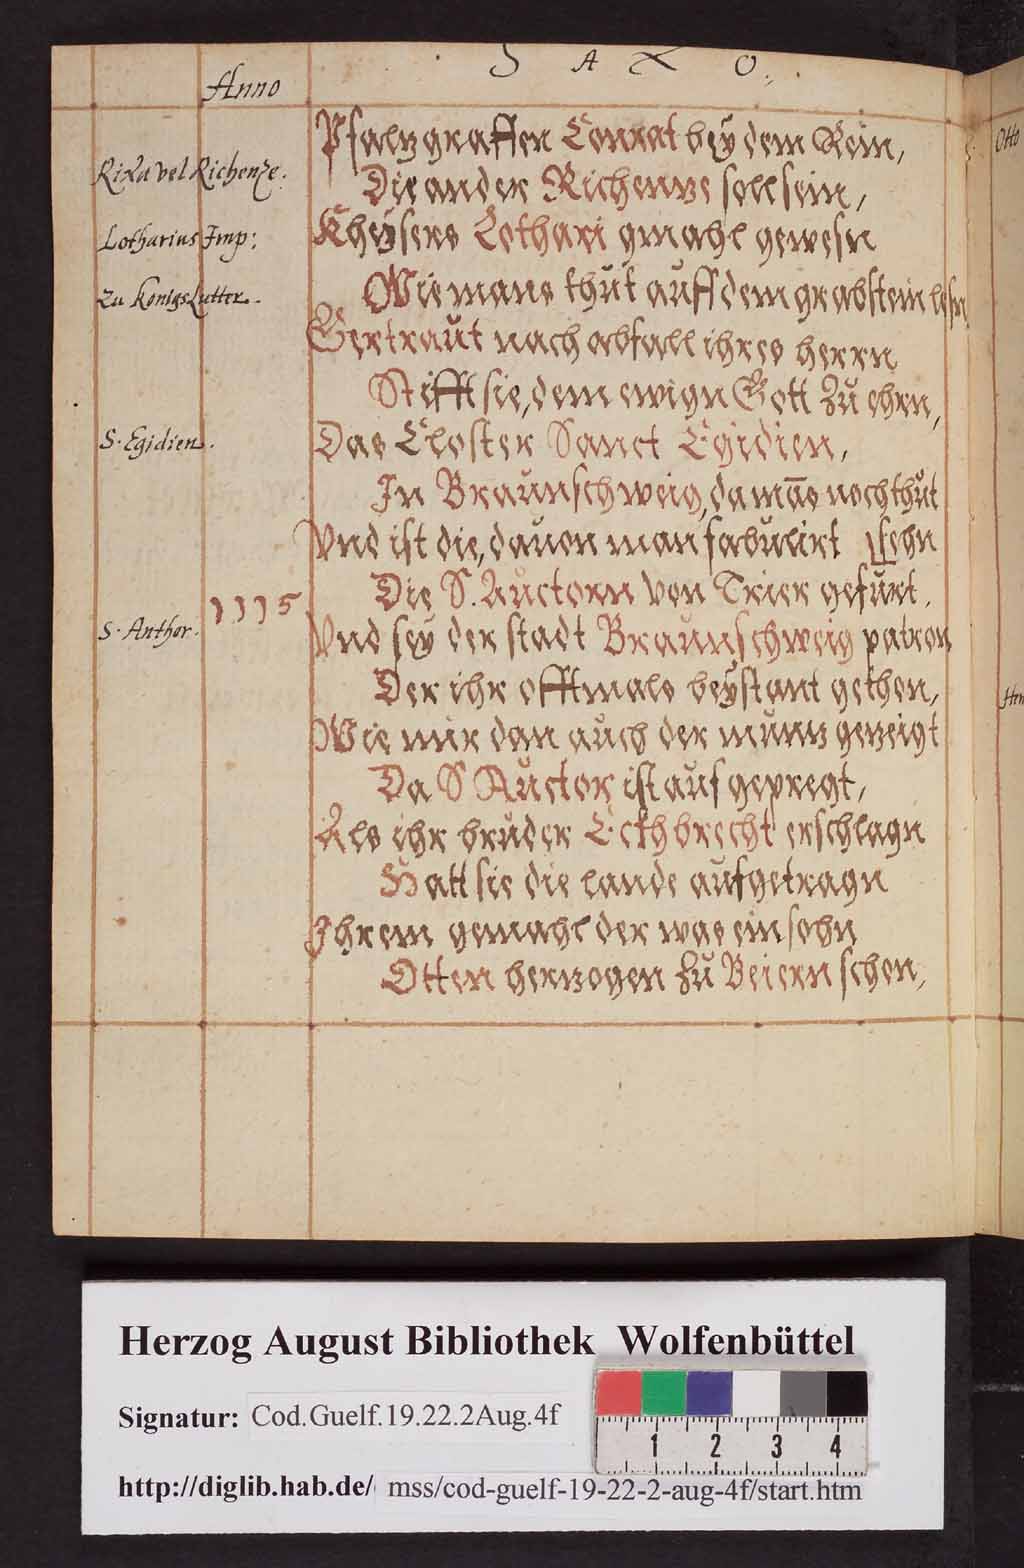 SAXO.
Anno
Pfaltzgraffen Conrat beÿ dem Rein,
Rixa vel Richenze.
Die ander Richentze soll sein,
Lotharius Imp:
Kheÿsers Lothari gmahl gewesn
Zu KönigsLutter.
Wie mans thut auff dem grabstein lesn
Gertraut nach abfall ihres herrn
Stifft sie, dem ewign Gott zu ehrn,
S. Egidien.
Das Closter Sanct Egidien,
In Braunschweig, da mās noch thut
Vnd ist die, dauon man fabulirt sehn
1115
Die S. Auctorn von Trier gefurt.
S. Anthor.
Vnd seÿ der stadt Braunschweig patron
Der ihr offtmals beÿstant gethon,
Wie mir dan auch der muntz gezeigt
Da S Auctor ist auf gepregt,
Als ihr bruder Eckhbrecht erschlagn
Hatt sie die lande aufgetragn
Ihrem gemahl der was ein sohn
Otten hertzogen zu Beiern schon,
Otto
Herzog August Bibliothek Wolfenbüttel
Signatur: Cod.Guelf.19.22.2Aug.4f
1 2 3 4
http://diglib.hab.de/ mss/cod-guelf-19-22-2-aug-4f/start.htm